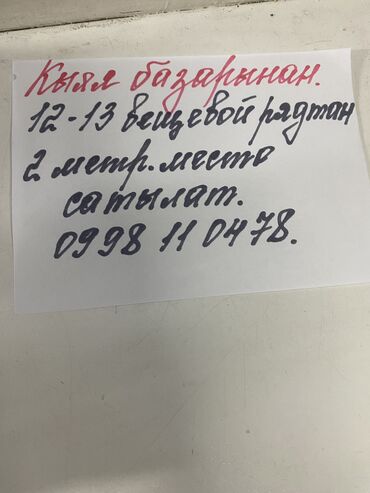 Кыял базарынан.
12-13 вещевой рядтан
2 метр. место
сатылат.
0998 11 0478.